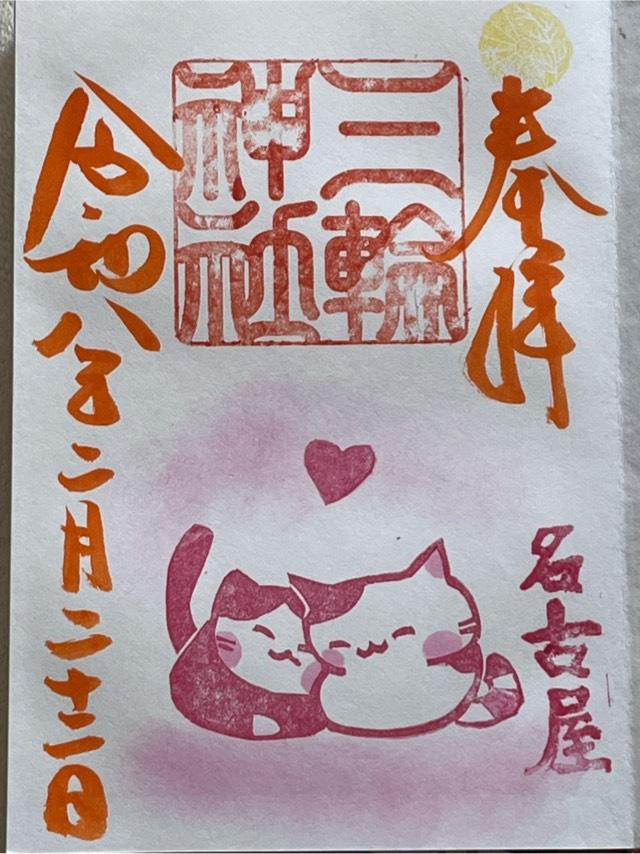 奉拝
三輪
神社
名古屋
令和八年二月二十二日